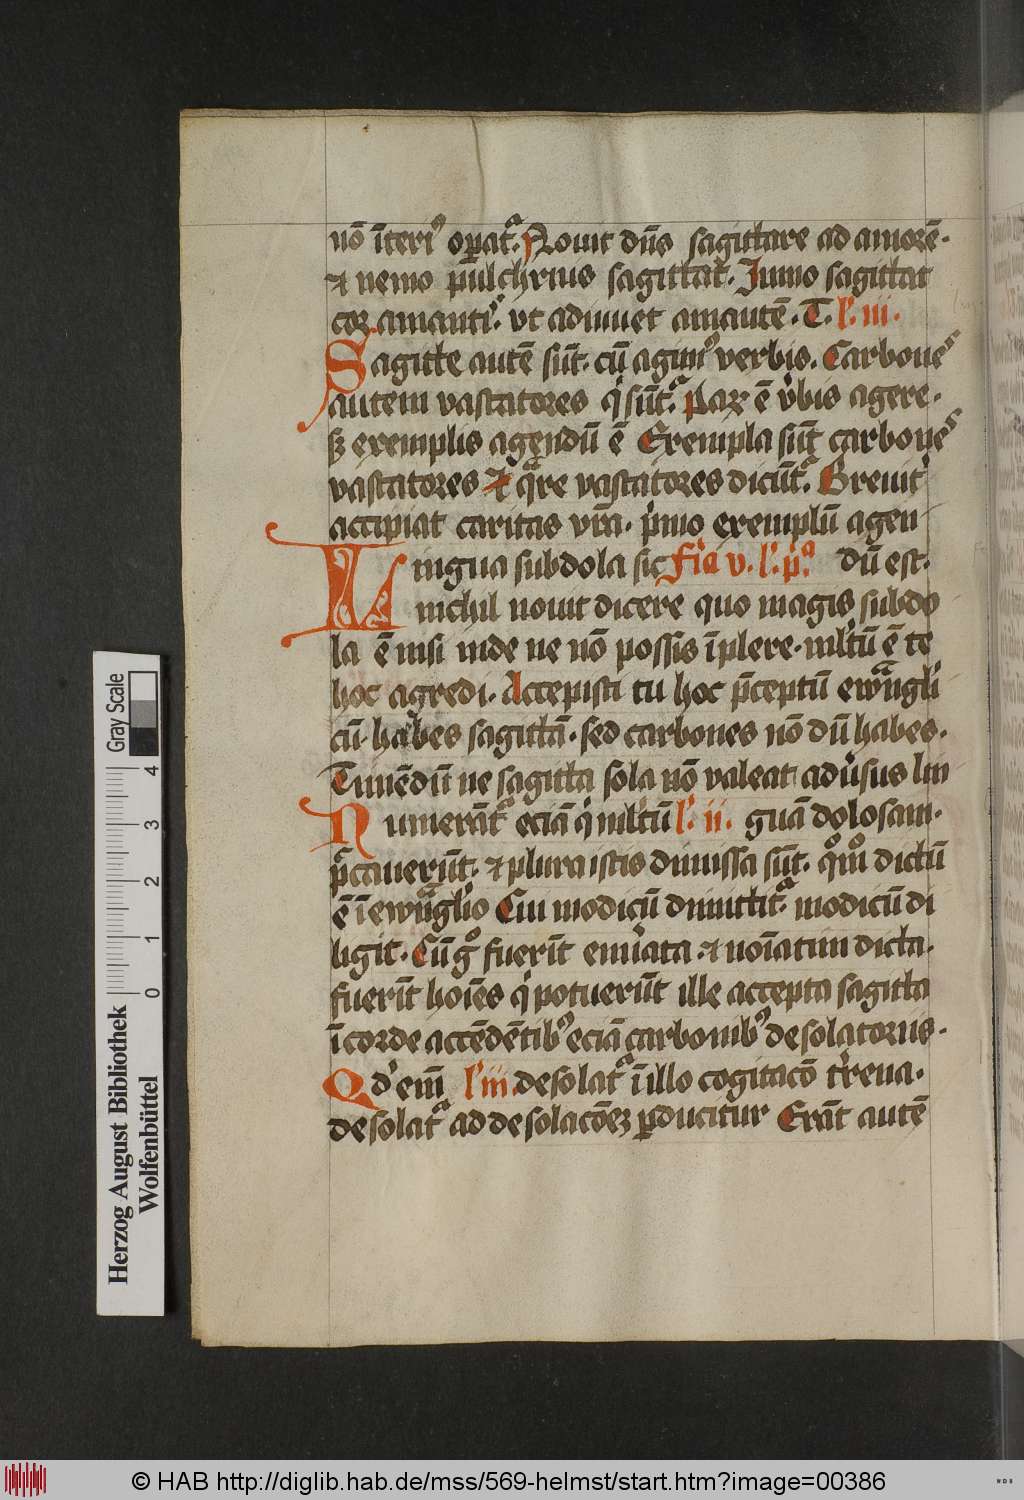 nō īteriꝰ oꝑatᷣ. Nouit dn̄s sagittare ad amorē.
⁊ nemo pulchrius sagittat. Jmmo sagittat
cor amantis. vt adiuuet amantē. T. l'. iii.
Sagitte autē sūt. cū agimꝰ verbis. Carbones
autem vastatores qͥ sūt. Parꝝ ē v̓bis agere.
sꝫ exemplis agendū ē Exempla sūt carbones
vastatores ⁊ qᷓre vastatores dicūtᷣ. Breuit̓
accipiat caritas vr̄a. pͥmo exemplū agen
Lingua subdola sic Fīa v. l'. pᷓ. dū est.
nichil nouit dicere quo magis subdo
la ē nisi inde ne nō possis īplere. mltū ē te
hoc agredi. Accepisti tu hoc p̄ceptū ewᷓngelii
cū habes sagittā. sed carbones nō dū habes.
Timēdū ne sagitta sola nō valeat adu̓sus lin
Numerātᷣ eciā qͥ mltū l'. ii. guā dolosam.
pᷓcauerūt. ⁊ plura istis dimissa sūt. qᷓm̊ dictū
ē ī ewᷓnglio Cui modicū dimittitᷣ. modicū di
ligit. Cū gͦ fuerīt enūata. ⁊ noīatim dicta.
fuerīt hoīes qͥ potuerūt ille accepta sagitta
ī corde accēdētibꝰ eciā carbonibꝰ desolatoriis.
Qd' em̄ l'iii. desolatᷣ ī illo cogitacō t̓rena.
desolatᷣ ad desolacōeꝫ ꝑducitur Erāt autē
Gray Scale
4
3
2
1
0
Herzog August Bibliothek
Wolfenbüttel
© HAB http://diglib.hab.de/mss/569-helmst/start.htm?image=00386